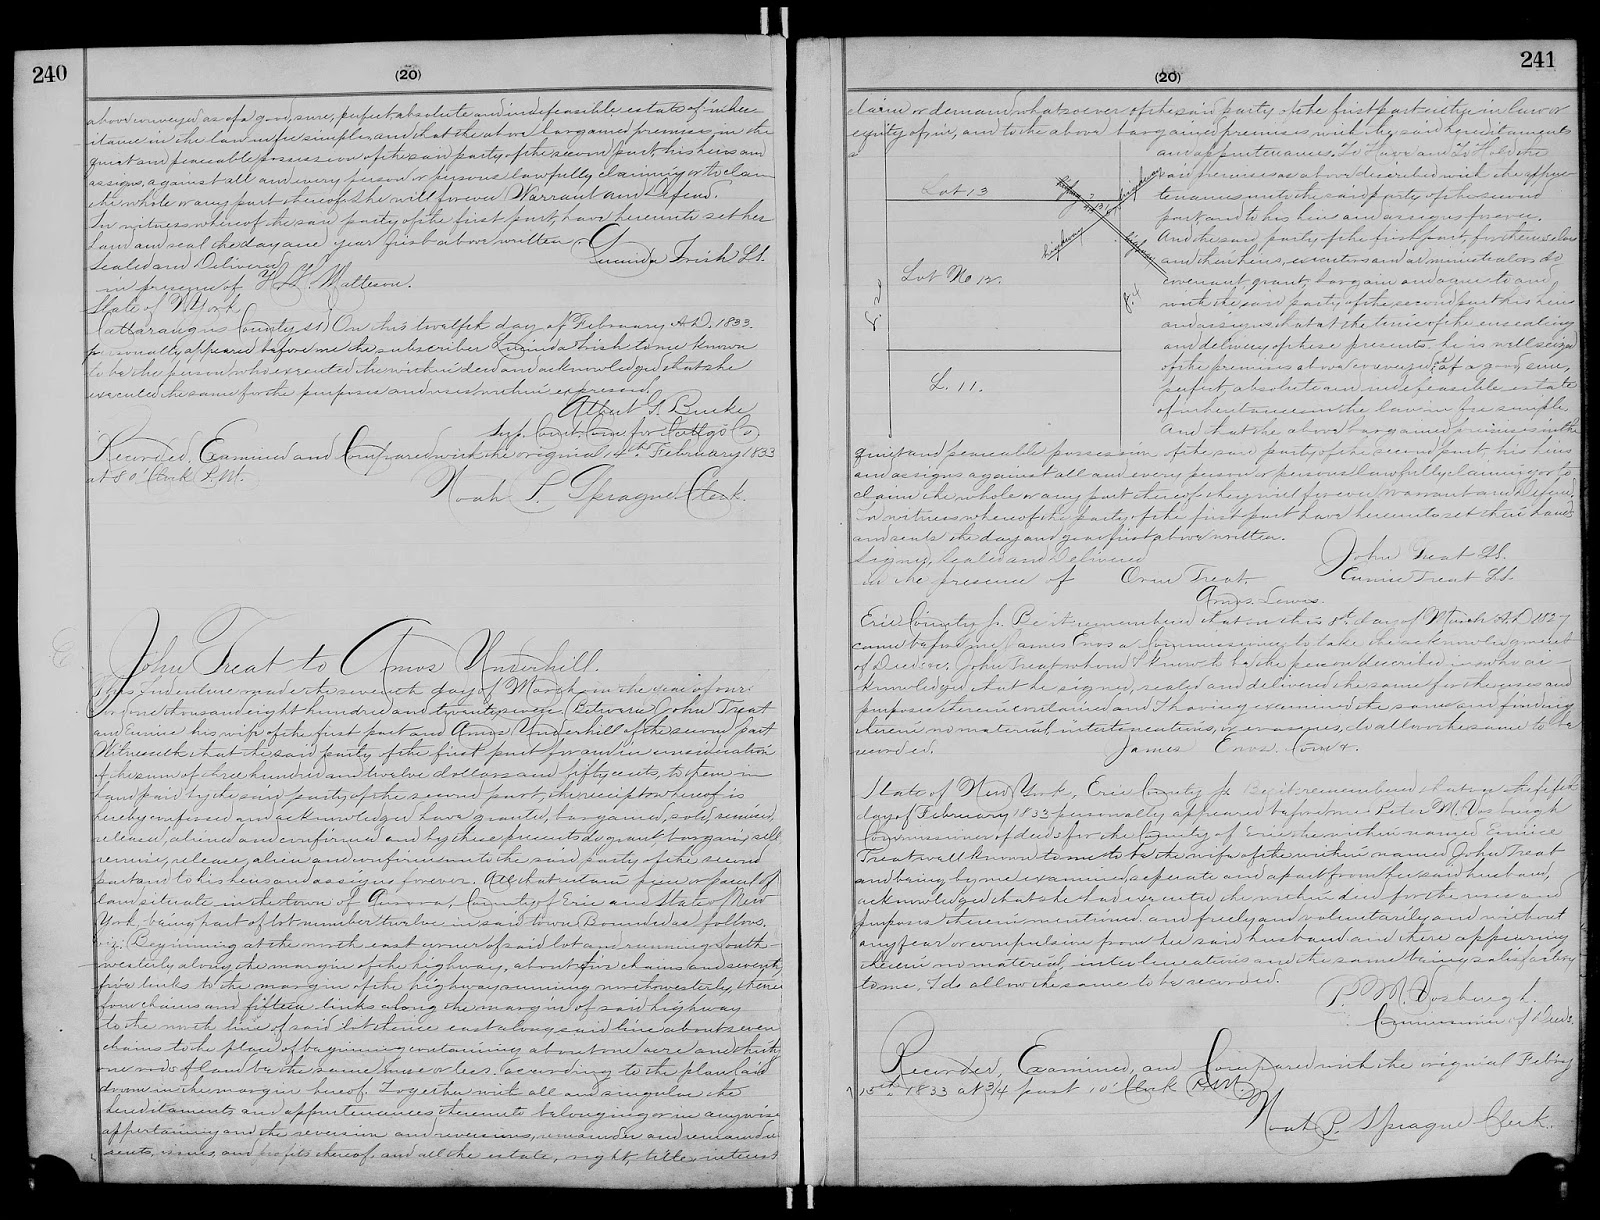 240
(20)
above conveyed as of a good, sure, perfect absolute and indefeasible estate of inher-
itance in the law in fee simple, and that the above bargained premises, in the
quiet and peaceable possession of the said party of the second part, his heirs and
assigns, against all and every person or persons lawfully claiming or to claim
the whole or any part thereof she will forever Warrant and Defend.
In witness whereof the said party of the first part, have hereunto set her
hand and seal the day and year first above written.
Sealed and Delivered
Lucinda Irish L.S.
in presence of
State of N York
Cattaraugus County ss) On this twelfth day of February A.D. 1833.
personally appeared before me the subscriber Lucinda Irish to me known
to be the person who executed the within deed and acknowledged that she
executed the same for the purposes and uses within expressed.
Albert G. Burke
Recorded, Examined and Compared with the original 14th February 1833
at 8 O'Clock P.M.
Noah P. Sprague Clerk.
John Treat to Amos Underhill.
This indenture made the seventh day of March in the year of our
Lord one thousand eight hundred and twenty seven Between John Treat
and Eunice his wife of the first part and Amos Underhill of the second part
Witnesseth that the said party of the first part for and in consideration
of the sum of three hundred and twelve dollars and fifty cents, to them in
hand paid by the said party of the second part, the receipt whereof is
hereby confessed and acknowledged have granted, bargained, sold, remised,
released, aliened and confirmed and by these presents do grant, bargain, sell
remise, release, alien and confirm unto the said party of the second
part and to his heirs and assigns forever. All that certain piece or parcel of
land situate in the town of Aurora, County of Erie and State of New
York, being part of lot number twelve in said town Bounded as follows.
viz: Beginning at the north east corner of said lot and running south-
westerly along the margin of the highway, about five chains and seventy
five links to the margin of the highway running northwesterly, thence
four chains and fifteen links along the margin of said highway
to the north line of said lot thence east along said line about seven
chains to the place of beginning containing about one acre and thirty
one rods of land be the same more or less. according to the plan laid
down in the margin hereof. Together with all and singular the
hereditaments and appurtenances thereunto belonging or in anywise
appertaining and the reversion and reversions, remainder and remainders
rents, issues, and profits thereof, and all the estate, right, title, interest
241
(20)
claim or demand whatsoever of the said party of the first part either in law or
equity of, in, and to the above bargained premises with the said hereditaments
and appurtenances. To Have and To Hold the
said premises as above described with the appur-
tenances unto the said party of the second
part and to his heirs and assigns forever.
And the said party of the first part, for themselves
and their heirs, executors and administrators do
covenant, grant, bargain and agree to and
with the said party of the second part his heirs
and assigns that at the time of the ensealing
and delivery of these presents he is well seized
of the premises above conveyed: as of a good, sure,
perfect, absolute and indefeasible estate
of inheritance in the law in fee simple
And that the above bargained premises in the
Lot 13
highway
highway
highway
Lot No 12.
L. 11.
quiet and peaceable possession of the said party of the second part, his heirs
and assigns against all and every person or persons lawfully claiming or to
claim the whole or any part thereof they will forever Warrant and Defend.
In witness whereof the party of the first part have hereunto set their hands
and seals the day and year first above written.
Signed, Sealed and Delivered
John Treat L.S.
in the presence of Orren Treat.
Eunice Treat L.S.
Amos. Lewis.
Erie County ss. Be it remembered that on this 8th. day of March A.D. 1827
came before me James Enos a Commissioner to take the acknowledgment
of Deeds &c. John Treat whom I know to be the person described in who ac-
knowledged that he signed, sealed and delivered the same for the uses and
purposes therein contained and I having examined the same and finding
therein no material interlineations, or erasures, do allow the same to be
recorded.
James Enos Comr.
State of New York, Erie County ss Be it remembered that on the fifth
day of February 1833 personally appeared before me Peter M. Vosburgh
Commissioner of deeds for the County of Erie the within named Eunice
Treat well known to me to be the wife of the within named John Treat
and being by me examined seperate and apart from her said husband,
acknowledged that she had executed the within deed for the uses and
purposes therein mentioned. and freely and voluntarily and without
any fear or compulsion from her said husband and there appearing
therein no material interlineations and the same being satisfactory
to me, I do allow the same to be recorded.
P. M. Vosburgh.
Commissioner of Deeds.
Recorded, Examined, and Compared with the original Feb'ry
15th. 1833 at 3/4 past 10 O'Clock A.M.
Noah P. Sprague Clerk.